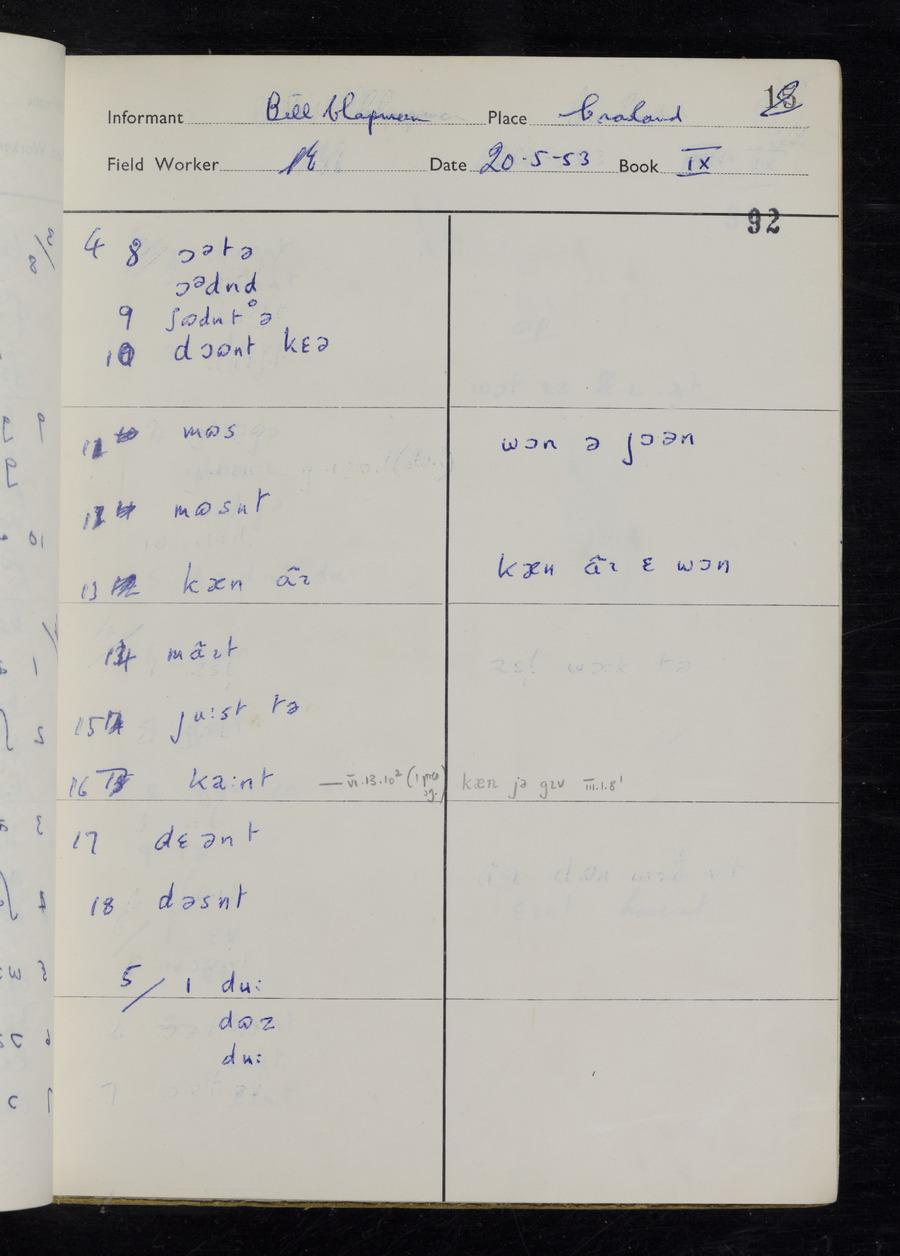 Informant Bill Chapman Place Croland 18
Field Worker Date 20·5·53 Book IX
92
4 8 ɔətə
ɔədnd
9 ʃɷdnt ə
10 dɔɷnt kɛə
11 mɷs wɔn ə jɔən
12 mɷsnt
13 kæn ãɪ kæn ãɪ ɛ wɔn
14 mãɪt
15 ju:st tə
16 ka:nt — VI.13.10² kæn jə gɪv III.1.8¹
17 dɛənt
18 dəsnt
5/1 du:
dɷz
du: